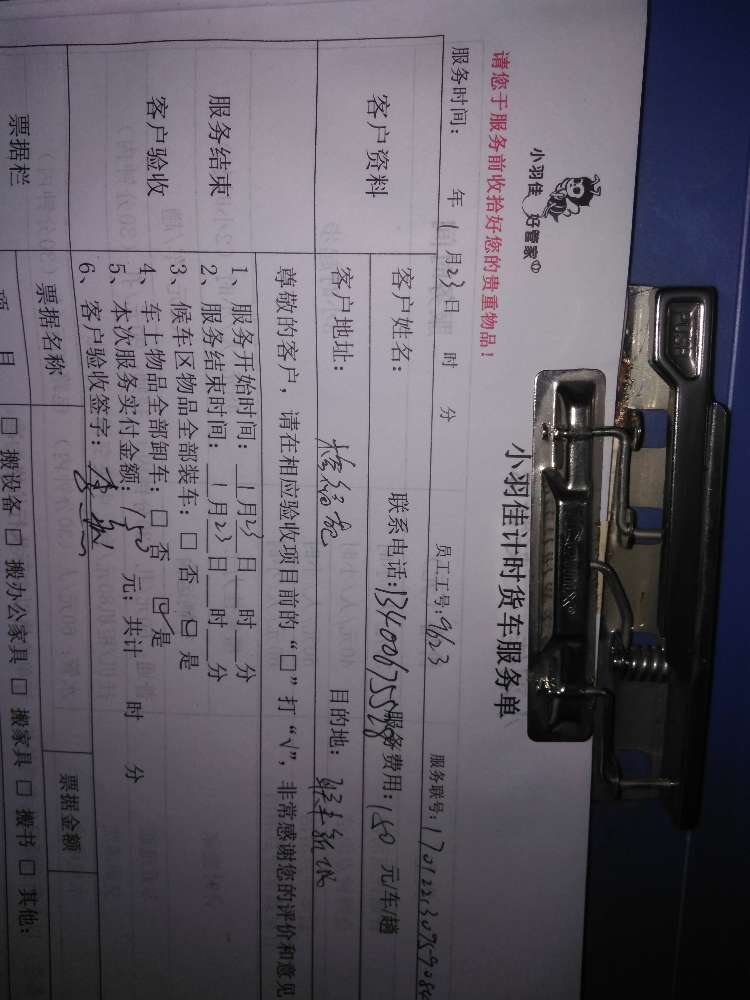 小羽佳 好管家
小羽佳计时货车服务单
请您于服务前收拾好您的贵重物品！
服务时间： 年 1月23日 时 分 员工工号：9623 服务联号：
客户资料
客户姓名： 联系电话：13400675528 服务费用：150 元/车/趟
客户地址： 目的地：联丰新城
尊敬的客户，请在相应验收项目前的“□”打“√”，非常感谢您的评价和意见
服务结束
客户验收
1、服务开始时间：1月23日 时 分
2、服务结束时间：1月23日 时 分
3、候车区物品全部装车：□ 否 ☑ 是
4、车上物品全部卸车：□ 否 ☑ 是
5、本次服务实付金额：150 元；共计 时 分
6、客户验收签字：
票据栏
票据名称 票据金额
项 目 □ 搬设备 □ 搬办公家具 □ 搬家具 □ 搬书 □ 其他：